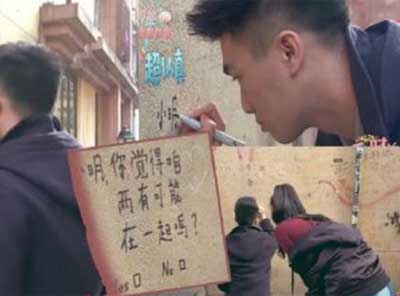 超认真
小明
小明,你觉得咱
两有可能
在一起嗎?
Yes□ No□